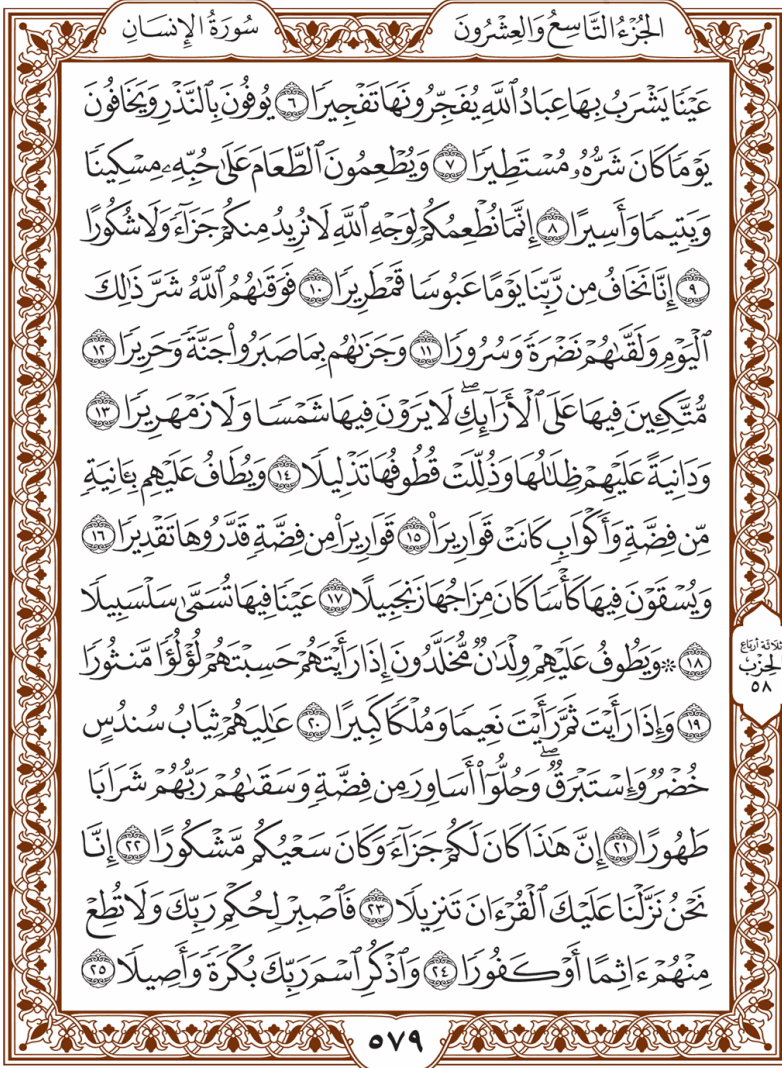 سُورَةُ الإِنسَانِ
الجُزْءُ التَّاسِعُ وَالعِشْرُونَ
عَيْنٗا يَشْرَبُ بِهَا عِبَادُ ٱللَّهِ يُفَجِّرُونَهَا تَفْجِيرٗا ٦ يُوفُونَ بِٱلنَّذْرِ وَيَخَافُونَ
يَوْمٗا كَانَ شَرُّهُۥ مُسْتَطِيرٗا ٧ وَيُطْعِمُونَ ٱلطَّعَامَ عَلَىٰ حُبِّهِۦ مِسْكِينٗا
وَيَتِيمٗا وَأَسِيرًا ٨ إِنَّمَا نُطْعِمُكُمْ لِوَجْهِ ٱللَّهِ لَا نُرِيدُ مِنكُمْ جَزَآءٗ وَلَا شُكُورًا
٩ إِنَّا نَخَافُ مِن رَّبِّنَا يَوْمًا عَبُوسٗا قَمْطَرِيرٗا ١٠ فَوَقَىٰهُمُ ٱللَّهُ شَرَّ ذَٰلِكَ
ٱلْيَوْمِ وَلَقَّىٰهُمْ نَضْرَةٗ وَسُرُورٗا ١١ وَجَزَىٰهُم بِمَا صَبَرُواْ جَنَّةٗ وَحَرِيرٗا ١٢
مُّتَّكِـِٔينَ فِيهَا عَلَى ٱلْأَرَآئِكِۖ لَا يَرَوْنَ فِيهَا شَمْسٗا وَلَا زَمْهَرِيرٗا ١٣
وَدَانِيَةً عَلَيْهِمْ ظِلَٰلُهَا وَذُلِّلَتْ قُطُوفُهَا تَذْلِيلٗا ١٤ وَيُطَافُ عَلَيْهِم بِـَٔانِيَةٖ
مِّن فِضَّةٖ وَأَكْوَابٖ كَانَتْ قَوَارِيرَا۠ ١٥ قَوَارِيرَاْ مِن فِضَّةٖ قَدَّرُوهَا تَقْدِيرٗا ١٦
وَيُسْقَوْنَ فِيهَا كَأْسٗا كَانَ مِزَاجُهَا زَنجَبِيلًا ١٧ عَيْنٗا فِيهَا تُسَمَّىٰ سَلْسَبِيلٗا
١٨ ۞وَيَطُوفُ عَلَيْهِمْ وِلْدَٰنٞ مُّخَلَّدُونَ إِذَا رَأَيْتَهُمْ حَسِبْتَهُمْ لُؤْلُؤٗا مَّنثُورٗا
١٩ وَإِذَا رَأَيْتَ ثَمَّ رَأَيْتَ نَعِيمٗا وَمُلْكٗا كَبِيرًا ٢٠ عَٰلِيَهُمْ ثِيَابُ سُندُسٍ
خُضْرٞ وَإِسْتَبْرَقٞۖ وَحُلُّوٓاْ أَسَاوِرَ مِن فِضَّةٖ وَسَقَىٰهُمْ رَبُّهُمْ شَرَابٗا
طَهُورًا ٢١ إِنَّ هَٰذَا كَانَ لَكُمْ جَزَآءٗ وَكَانَ سَعْيُكُم مَّشْكُورًا ٢٢ إِنَّا
نَحْنُ نَزَّلْنَا عَلَيْكَ ٱلْقُرْءَانَ تَنزِيلٗا ٢٣ فَٱصْبِرْ لِحُكْمِ رَبِّكَ وَلَا تُطِعْ
مِنْهُمْ ءَاثِمًا أَوْ كَفُورٗا ٢٤ وَٱذْكُرِ ٱسْمَ رَبِّكَ بُكْرَةٗ وَأَصِيلٗا ٢٥
ثلاثة أرباع
الحِزْب
٥٨
٥٧٩